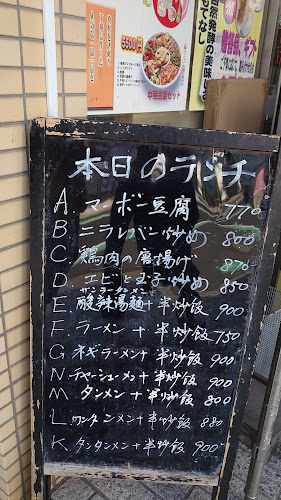 本日のランチ
A. マーボー豆腐 770
B. ニラレバー炒め 800
C. 鶏肉の唐揚げ 870
D. エビと玉子炒め 850
サンラータンメン
E. 酸辣湯麺+半炒飯 900
F. ラーメン+半炒飯 750
G ネギラーメン+半炒飯 900
N チャーシューメン+半炒飯 900
M タンメン+半炒飯 800
L. ワンタンメン+半炒飯 880
K. タンタンメン+半炒飯 900